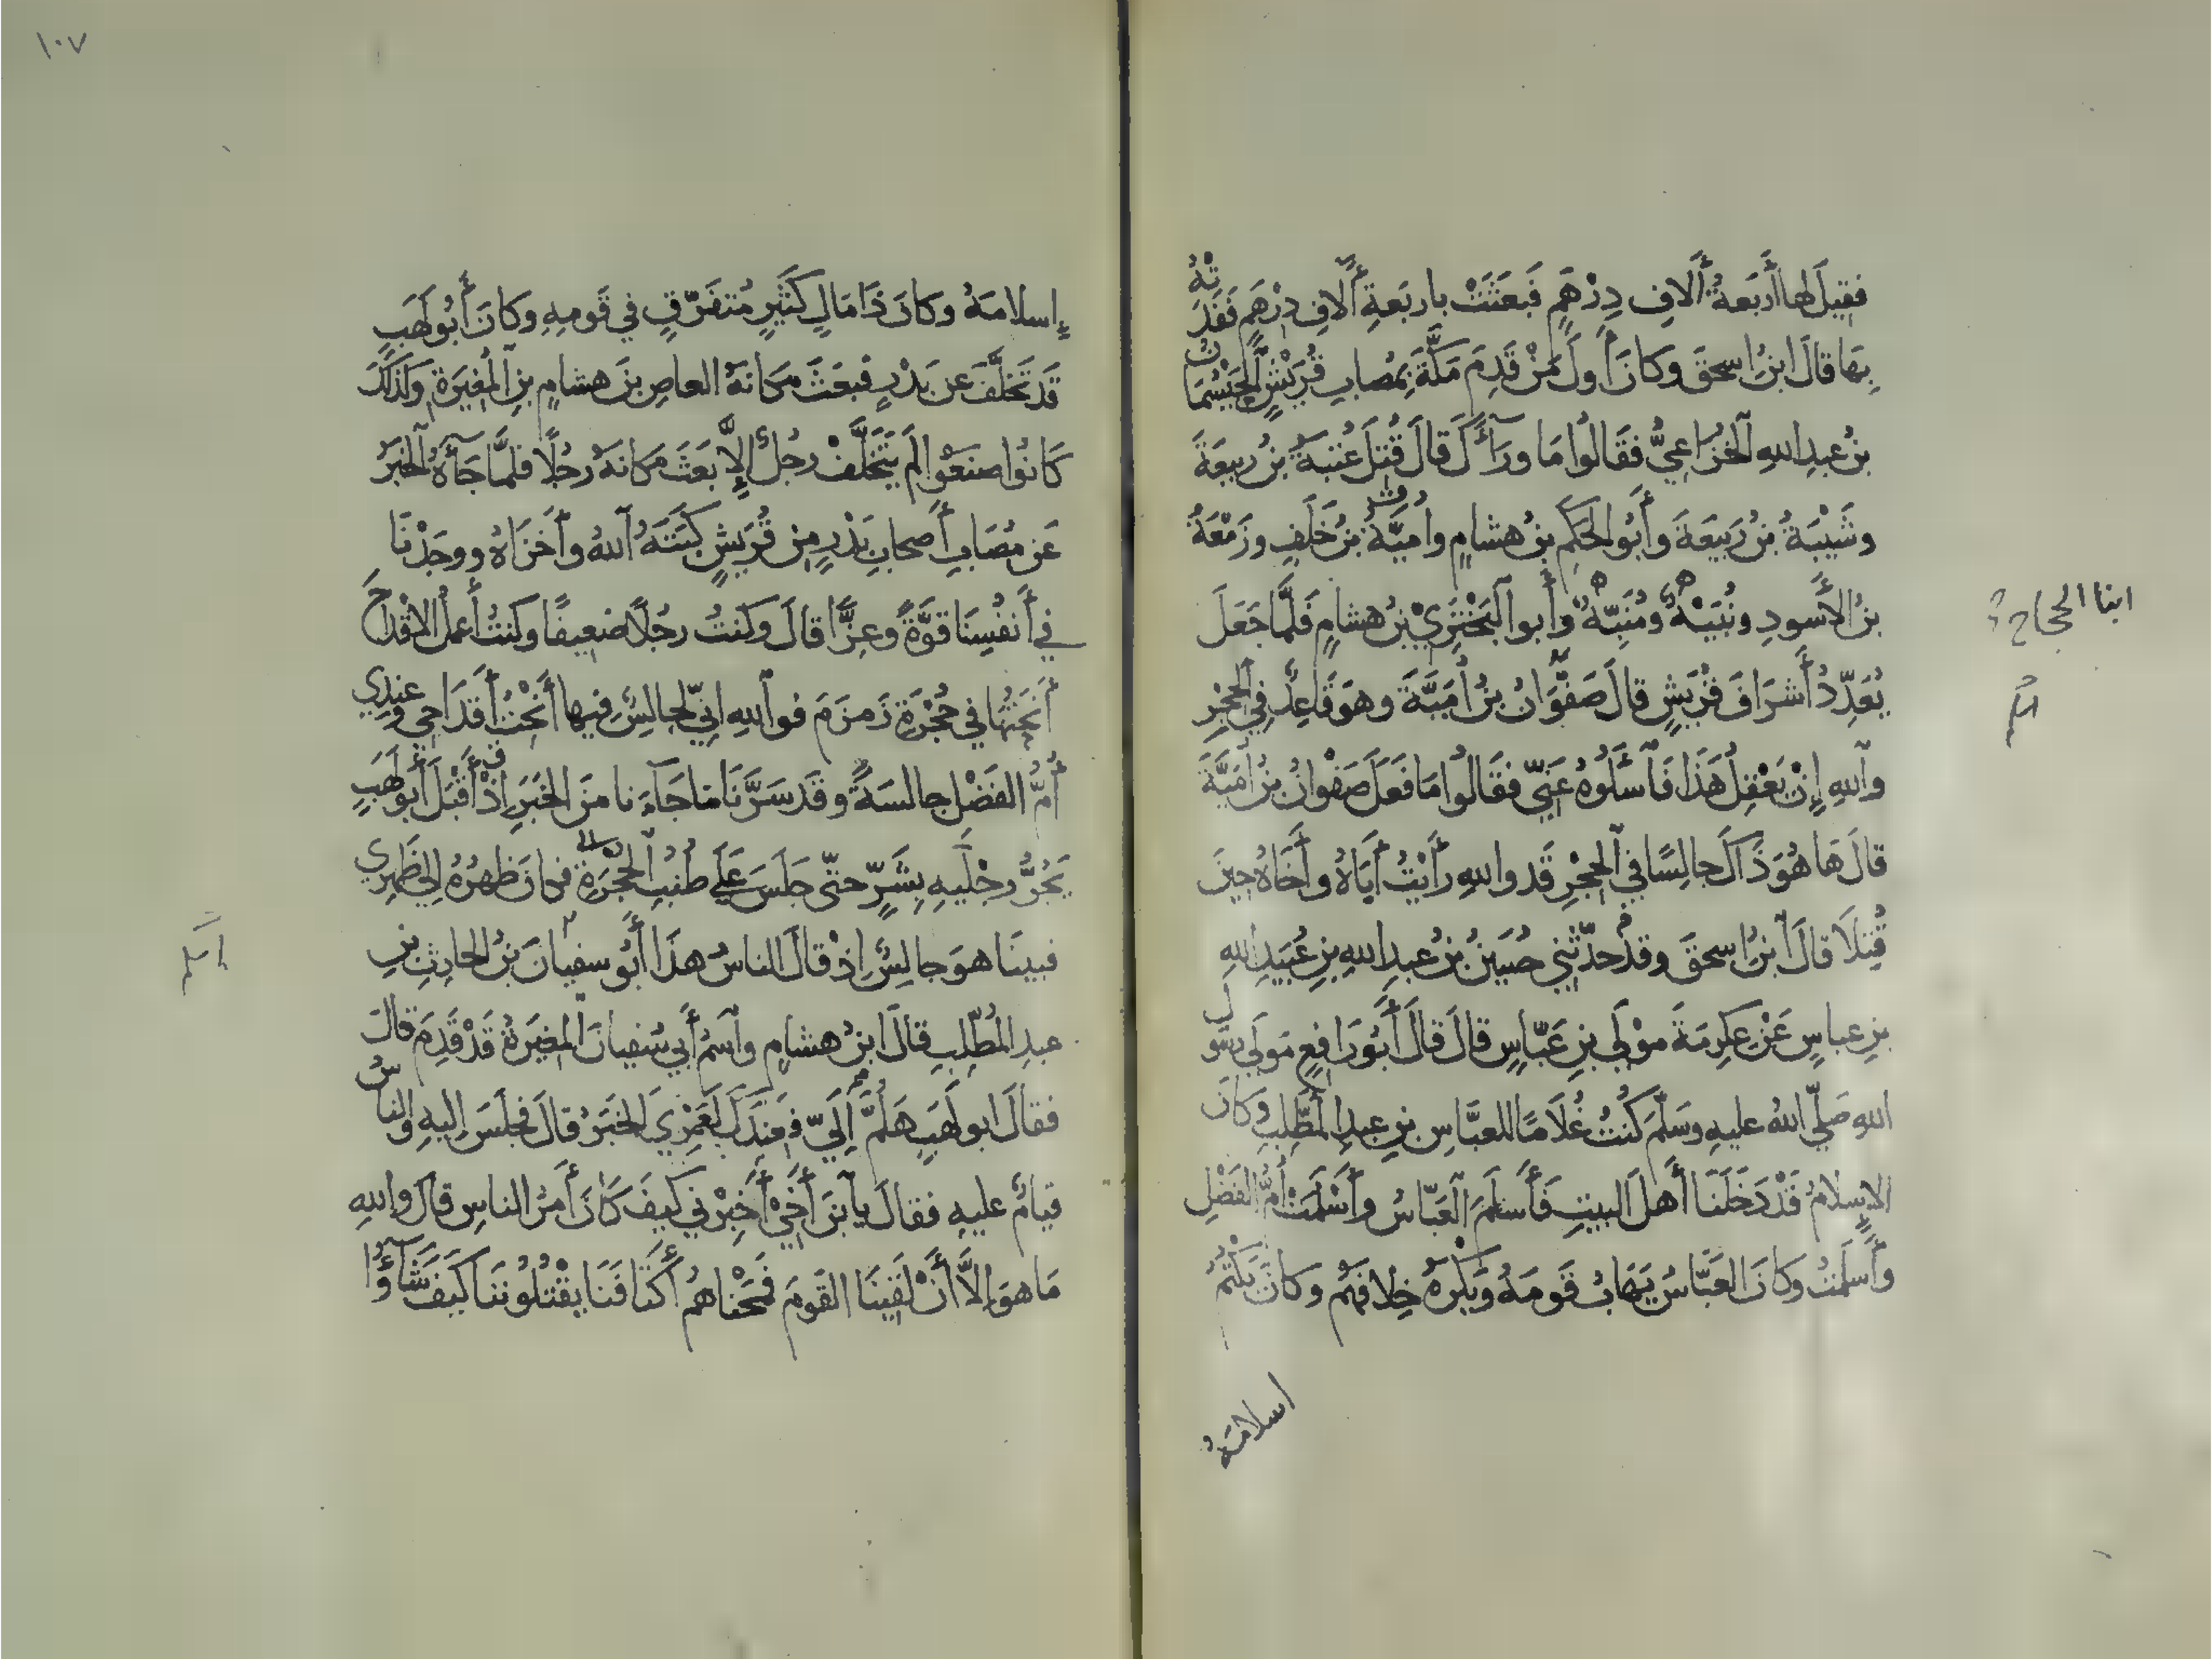 فقيلَ لها أَربَعةُ أَلافِ دِرْهَمٍ فَبعَثَتْ باربَعةِ أَلافِ دِرْهَمٍ فَفَدَتْهُ
بِهَا قالَ ابنُ اسحقَ وكانَ أَولَ مَنْ قَدِمَ مَكَّةَ بِمُصابِ قُرَيْشٍ الحَيْسُمَانُ
بنُ عبدِ اللهِ الخُزَاعِيُّ فقَالُوا مَا ورَآءَكَ قالَ قُتِلَ عُتبَةُ بنُ ربيعَةَ
وشَيْبَةُ بنُ رَبيعَةَ وأَبُو الحَكَمِ بنُ هشامٍ وأُميَّةُ بنُ خَلَفٍ وزَمْعَةُ
بنُ الأَسودِ ونُبَيْهٌ ومُنَبِّهٌ وأَبو البَخْتَرِيِّ بنُ هشامٍ فَلَمَّا جَعَلَ
ابنا الحجاج
يُعَدِّدُ أَشرَافَ قُرَيشٍ قالَ صَفْوَانُ بنُ أُمَيَّةَ وهوَ قَاعِدٌ فِي الحِجْرِ
واللهِ إِنْ يَعْقِلُ هَذَا فَاسأَلُوهُ عَنِّي فقَالُوا مَا فَعَلَ صَفْوانُ بنُ أُمَيَّةَ
قالَ هَا هُوَ ذَاكَ جالِسًا فِي الحِجْرِ قَد واللهِ رَأَيْتُ أَبَاهُ وأَخَاهُ حِينَ
قُتِلَا قالَ ابنُ اسحقَ وقد حدَّثَنِي حُسَينُ بنُ عبدِ اللهِ بنِ عُبَيدِ اللهِ
بنِ عباسٍ عَنْ عِكرِمَةَ مَوْلَى بنِ عَبّاسٍ قالَ قالَ أَبُو رَافِعٍ مَولَى رسُولِ
اللهِ صَلّى اللهُ عليهِ وسَلَّمَ كُنتُ غُلَامًا للعبَّاسِ بنِ عبدِ المُطَّلِبِ وكانَ
الإسلامُ قَدْ دَخَلَنَا أَهلَ البيتِ فَأَسلَمَ العَبّاسُ وأَسْلَمَتْ أُمُّ الفَضْلِ
وأَسلَمْتُ وكانَ العَبّاسُ يَهَابُ قَومَهُ ويَكْرَهُ خِلافَهُمْ وكانَ يَكْتُمُ
اسلامَهُ
١٠٧
إِسلامَهُ وكانَ ذَا مَالٍ كَثيرٍ مُتفَرِّقٍ في قَومِهِ وكانَ أَبُو لَهَبٍ
قَد تَخَلَّفَ عن بَدْرٍ فبعَثَ مَكانَهُ العاصِ بنَ هشامٍ بنِ المُغيرَةِ وكَذلكَ
كَانُوا صنَعُوا لَم يَتَخَلَّفْ رجُلٌ إِلاَّ بَعَثَ مَكانَهُ رجُلًا فلمَّا جَآءَهُ الخبَرُ
عَن مُصَابِ أَصحابِ بَدْرٍ مِن قُرَيشٍ كبَتَهُ اللهُ وأَخزَاهُ ووجَدْنَا
في أَنفُسِنَا قوَّةً وعِزًّا قالَ وكنتُ رجُلاً ضعيفًا وكنتُ أَعملُ الأَقْداحَ
أَنحَتُهَا في حُجْرَةِ زَمزَمَ فواللهِ إنِّي لجالسٌ فيها أَنْحَتُ أَقدَاحِي وعندِي
أُمُّ الفَضْلِ جالسَةٌ وقَد سَرَّنَا مَا جَآءَنا منَ الخبَرِ إذْ أَقْبَلَ أَبو لَهَبٍ
يَجُرُّ رِجْلَيهِ بِشَرٍّ حتّى جَلَسَ عَلى طُنُبِ الحُجْرَةِ فكانَ ظَهرُهُ إلى ظَهرِي
فبينَا هوَ جالسٌ إذْ قالَ الناسُ هذَا أَبُو سفيانَ بنُ الحارثِ بنِ
عبدِ المُطَّلِبِ قالَ ابنُ هشامٍ واسمُ أَبي سُفيانَ المُغيرَةُ قَدْ قَدِمَ قالَ
فقالَ ابو لَهَبٍ هَلُمَّ إِلَيَّ فعِندَكَ لعَمْرِي الخبَرُ قالَ فجلَسَ إليهِ والناسُ
قيامٌ عليهِ فقالَ يابنَ أَخِي أَخبِرْنِي كيفَ كانَ أَمرُ الناسِ قالَ واللهِ
مَا هوَ إلاَّ أَنْ لَقِينَا القَومَ فَمنَحْناهُمْ أَكتَافَنَا يقْتُلُونَنَا كيفَ شَآؤُا